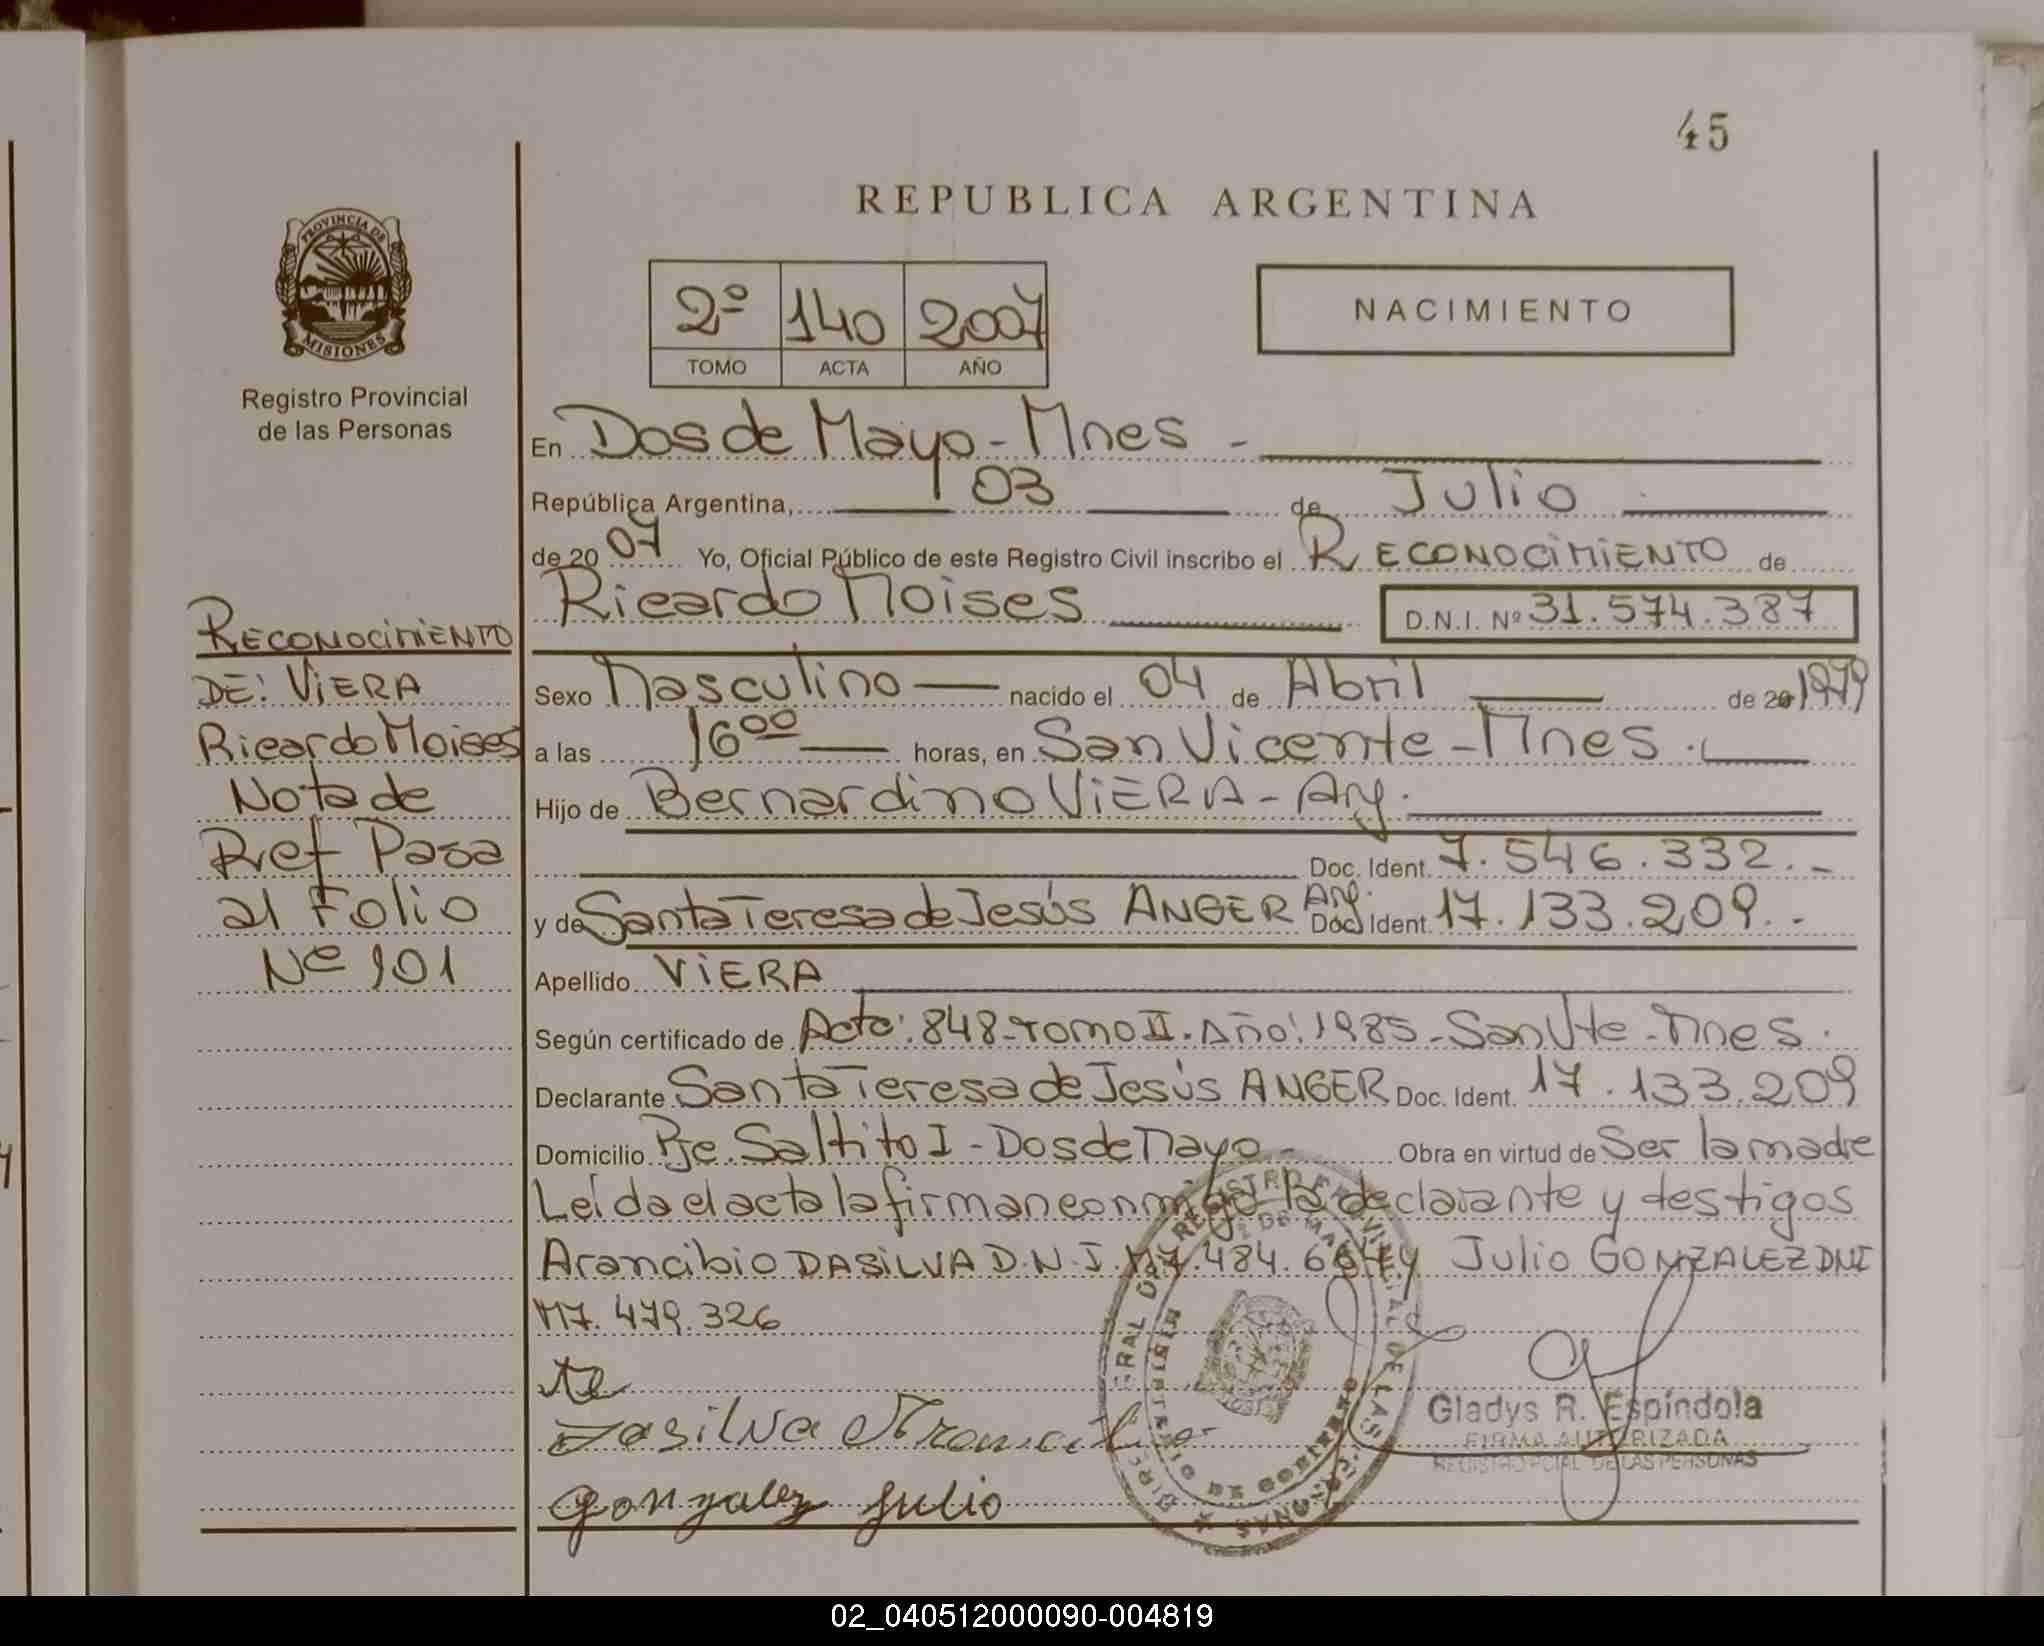 45
REPUBLICA ARGENTINA
PROVINCIA DE
MISIONES
Registro Provincial
de las Personas
2º 140 2007
TOMO ACTA AÑO
NACIMIENTO
En Dos de Mayo - Mnes -
República Argentina, 03 de Julio
de 20 07 Yo, Oficial Público de este Registro Civil inscribo el RECONOCIMIENTO de
Ricardo Moises D.N.I. Nº 31.574.387
Sexo Masculino nacido el 04 de Abril de 20 1979
a las 16 00 horas, en San Vicente - Mnes.
Hijo de Bernardino VIERA - Arg.
Doc. Ident. 7.546.332.-
y de Santa Teresa de Jesús ANGER Arg. Doc. Ident. 17.133.209.-
Apellido VIERA
Según certificado de Acta: 848 - Tomo II. Año: 1985 - San Vte - Mnes.
Declarante Santa Teresa de Jesús ANGER Doc. Ident. 17.133.209
Domicilio Pje. Saltito I - Dos de Mayo - Obra en virtud de Ser la madre
Leída el acta la firman conmigo la declarante y testigos
Arancibio DASILVA D.N.I. M7.484.664 y Julio GONZALEZ DNI
M7.479.326
RECONOCIMIENTO
DE: VIERA
Ricardo Moises
Nota de
Ref Pasa
al Folio
Nº 101
Dasilva
gonzalez julio
Gladys R. Espíndola
FIRMA AUTORIZADA
REGISTRO PCIAL. DE LAS PERSONAS
02_040512000090-004819